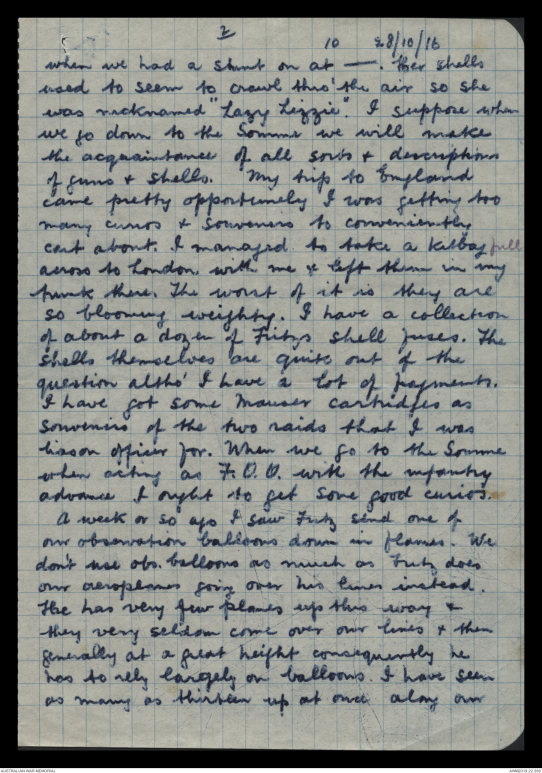 2
10 28/10/16
when we had a stunt on at —. Her shells
used to seem to crawl thro' the air so she
was nicknamed "Lazy Lizzie". I suppose when
we go down to the Somme we will make
the acquaintance of all sorts & descriptions
of guns & shells. My trip to England
came pretty opportunely I was getting too
many curios & souvenirs to conveniently
cart about. I managed to take a kitbag full
across to London with me & left them in my
trunk there. The worst of it is they are
so blooming weighty. I have a collection
of about a dozen of Fritz's shell fuses. The
shells themselves are quite out of the
question altho' I have a lot of fragments.
I have got some Mauser cartridges as
souvenirs of the two raids that I was
liason officer for. When we go to the Somme
when acting as F.O.O. with the infantry
advance I ought to get some good curios.
A week or so ago I saw Fritz send one of
our observation balloons down in flames. We
don't use obs. balloons as much as Fritz does
our aeroplanes going over his lines instead.
He has very few planes up this way &
they very seldom come over our lines & then
generally at a great height consequently he
has to rely largely on balloons. I have seen
as many as thirteen up at once along our
AUSTRALIAN WAR MEMORIAL